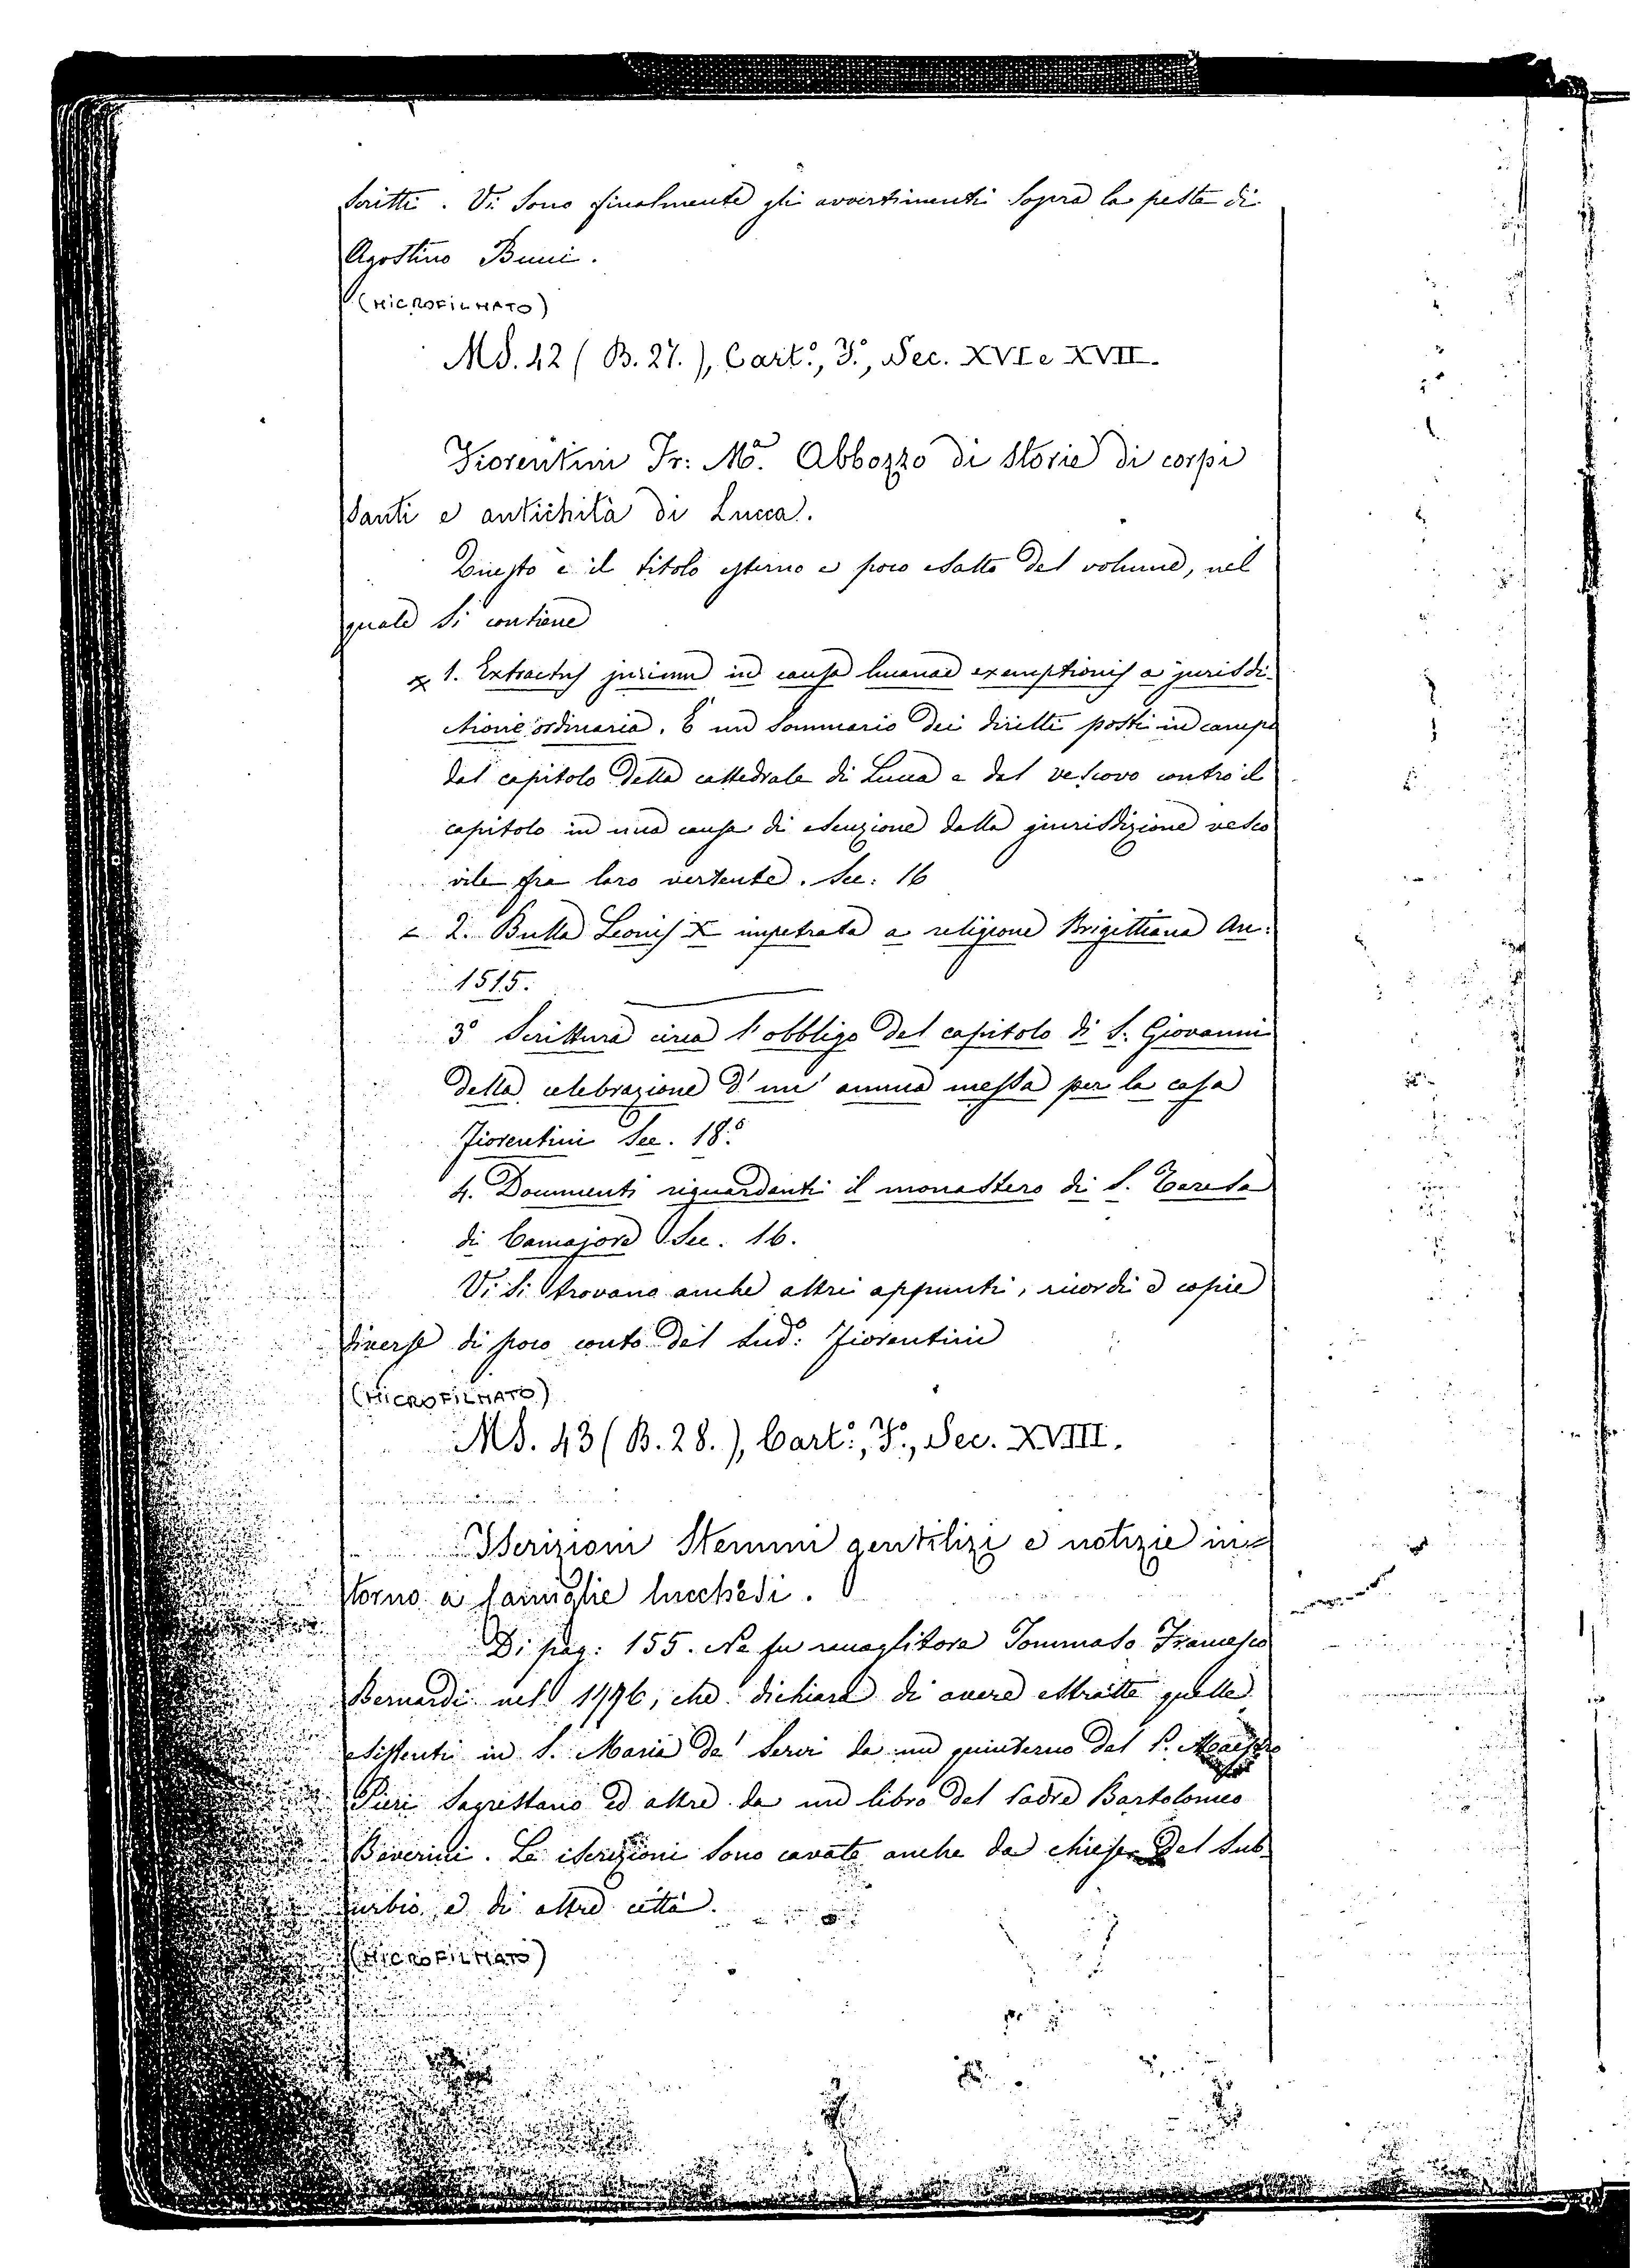 scritti. Vi sono finalmente gli avvertimenti sopra la peste di
Agostino Buni.
(MICROFILMATO)
MS. 42 (B. 27.), Cart.º, F.º, Sec. XVI e XVII.
Fiorentini Fr: M.ª Abbozzo di storie di corpi
santi e antichità di Lucca.
Questo è il titolo esterno e poco esatto del volume, nel
quale si contiene
1. Extractus jurium in causa lucanae exemptionis a jurisdi-
ctione ordinaria. È un sommario dei diritti posti in campo
dal capitolo della cattedrale di Lucca e dal vescovo contro il
capitolo in una causa di esenzione dalla giurisdizione vesco
vile fra loro vertente. Sec: 16
2. Bulla Leonis X impetrata a religione Brigittiana An:
1515.
3º Scrittura circa l'obbligo del capitolo di S. Giovanni
della celebrazione d'un' annua messa per la casa
Fiorentini Sec. 18.º
4. Documenti riguardanti il monastero di S. Teresa
di Camajore Sec. 16.
Vi si trovano anche altri appunti, ricordi e copie
diverse di poco conto del sud: Fiorentini
(MICROFILMATO)
MS. 43 (B. 28.), Cart.º, F.º, Sec. XVIII.
Iscrizioni Stemmi gentilizi e notizie in-
torno a famiglie lucchesi.
Di pag: 155. Ne fu raccoglitore Tommaso Francesco
Bernardi nel 1776, che dichiara di avere estratte quelle
esistenti in S. Maria de' Servi da un quinterno del P.
Pieri Sagrestano ed altre da un libro del Padre Bartolomeo
Beverini. Le iscrizioni sono cavate anche da chiese del sub-
urbio e di altre città.
(MICROFILMATO)